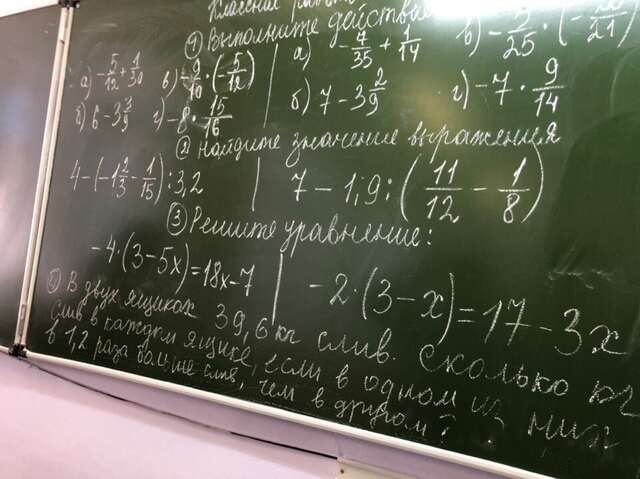 Классная
① Выполните действия
а) -5/12 + 1/30 в) 4 9/10 · (-5/12) | а) -4/35 + 1/14 в) -3/25 · (-20/21)
б) 6 - 3 3/9 г) -8 · 15/16 | б) 7 - 3 2/9 г) -7 · 9/14
② Найдите значение выражения
4 - (-1 2/3 - 1/15) : 3,2 | 7 - 1,9 : (11/12 - 1/8)
③ Решите уравнение:
-4 · (3 - 5x) = 18x - 7 | -2 · (3 - x) = 17 - 3x
В двух ящиках 39,6 кг слив. Сколько кг
слив в каждом ящике, если в одном из них
в 1,2 раза больше слив, чем в другом?